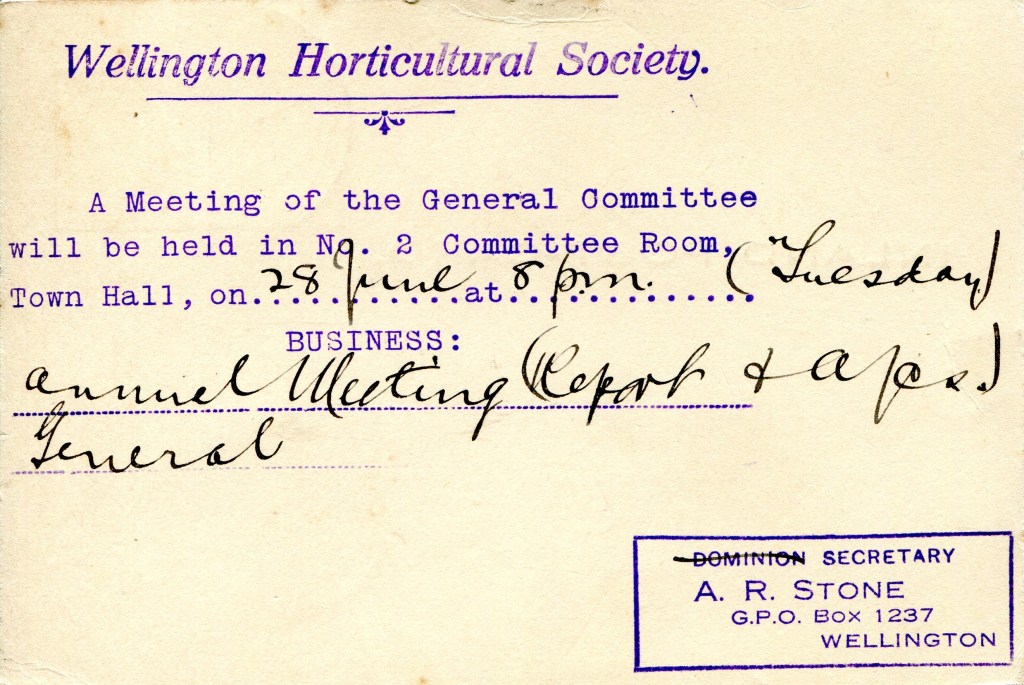 Wellington Horticultural Society.
A Meeting of the General Committee
will be held in No. 2 Committee Room,
Town Hall, on 28 June at 8 p.m. (Tuesday)
BUSINESS:
Annual Meeting (Report & A/cs.)
General
DOMINION SECRETARY
A. R. STONE
G.P.O. BOX 1237
WELLINGTON